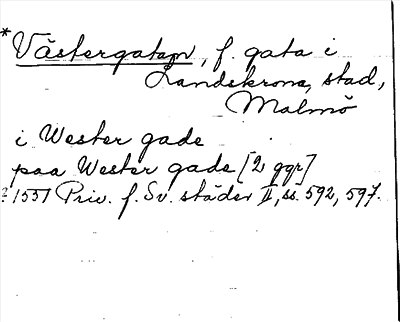 *Västergatan, f. gata i
Landskrona, stad,
Malmö
i Wester gade
paa Wester gade [2 ggr]
? 1551 Priv. f. Sv. städer II, ss. 592, 597.